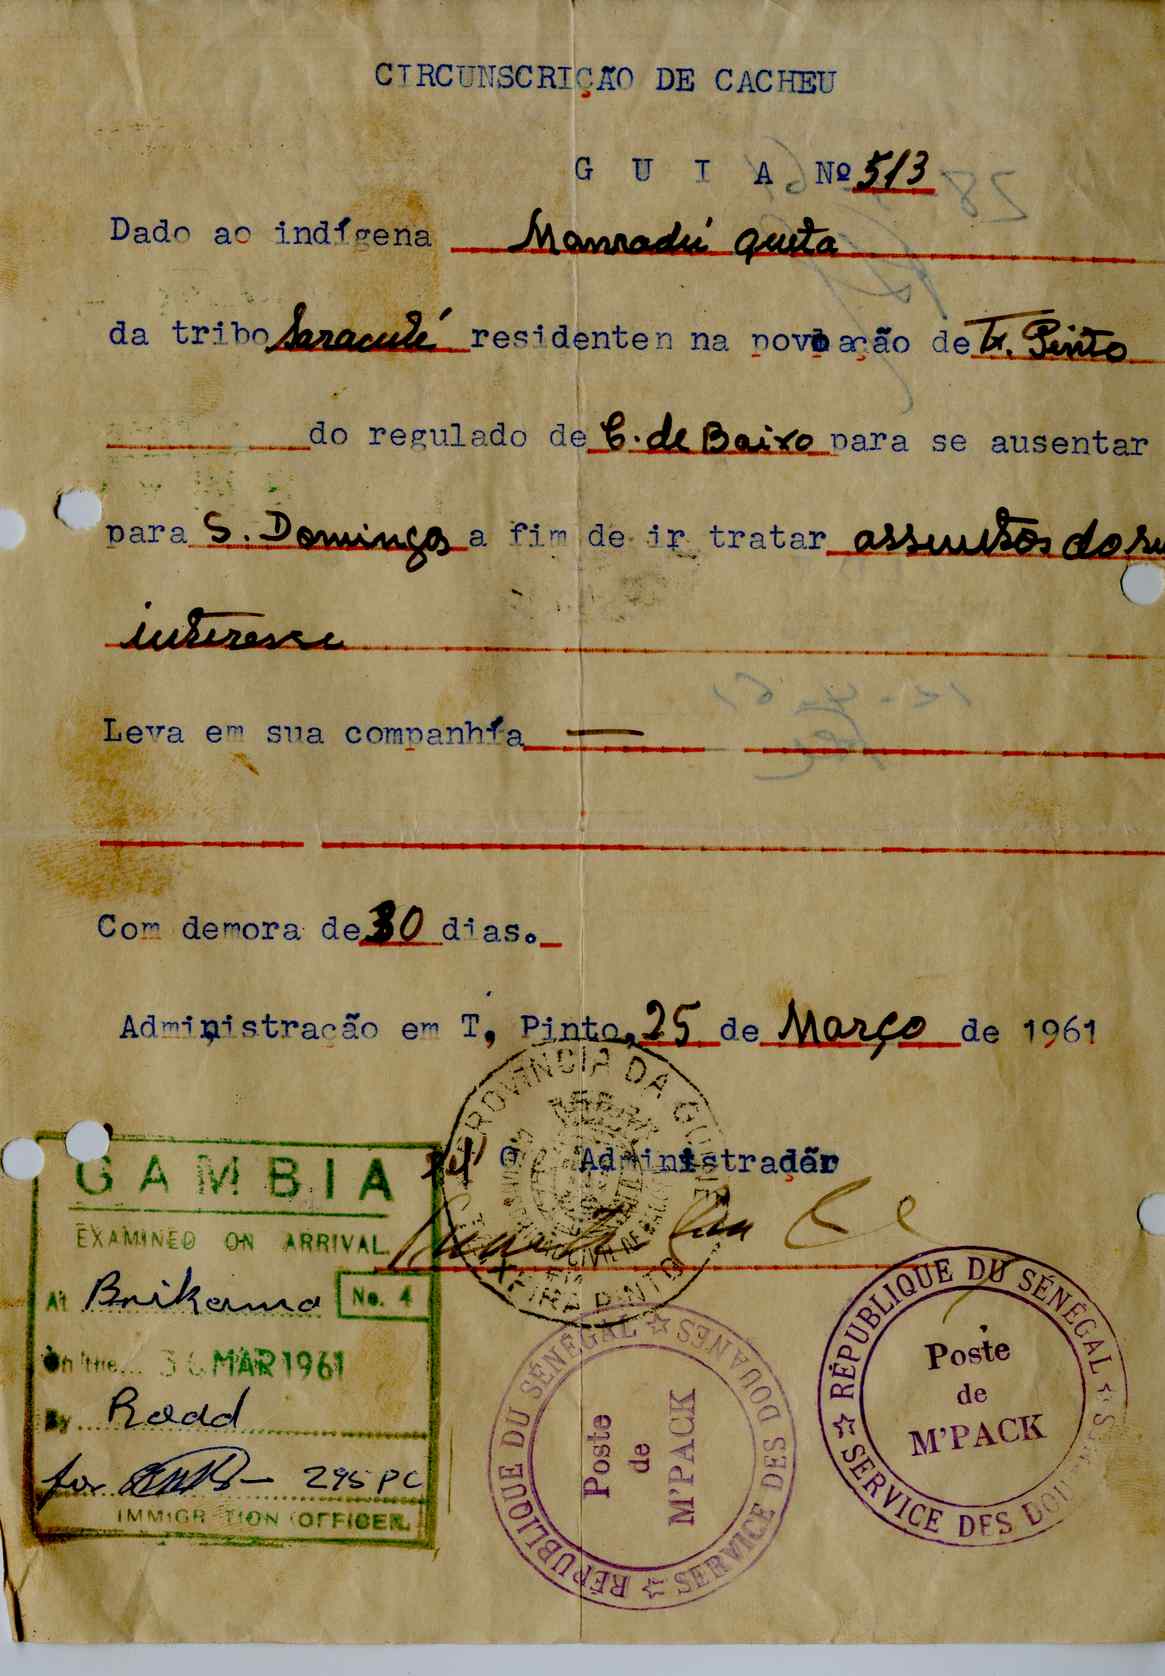 CIRCUNSCRIÇÃO DE CACHEU
G U I A Nº 513
Dado ao indígena Mamadú Queta
da tribo Saraculé residenten na povoação de Tx. Pinto
do regulado de C. de Baixo para se ausentar
para S. Domingos a fim de ir tratar assuntos do su
interesse
Leva em sua companhía —
Com demora de 30 dias.
Administração em T, Pinto, 25 de Março de 1961
O Administrador
PROVINCIA DA GUINÉ
TEIXEIRA PINTO
GAMBIA
EXAMINED ON ARRIVAL
At Brikama No. 4
On the... 30 MAR 1961
By Rodd
for 295 PC
IMMIGRATION OFFICER.
RÉPUBLIQUE DU SÉNÉGAL ☆ SERVICE DES DOUANES ☆
Poste
de
M'PACK
RÉPUBLIQUE DU SÉNÉGAL ☆ SERVICE DES DOUANES ☆
Poste
de
M'PACK